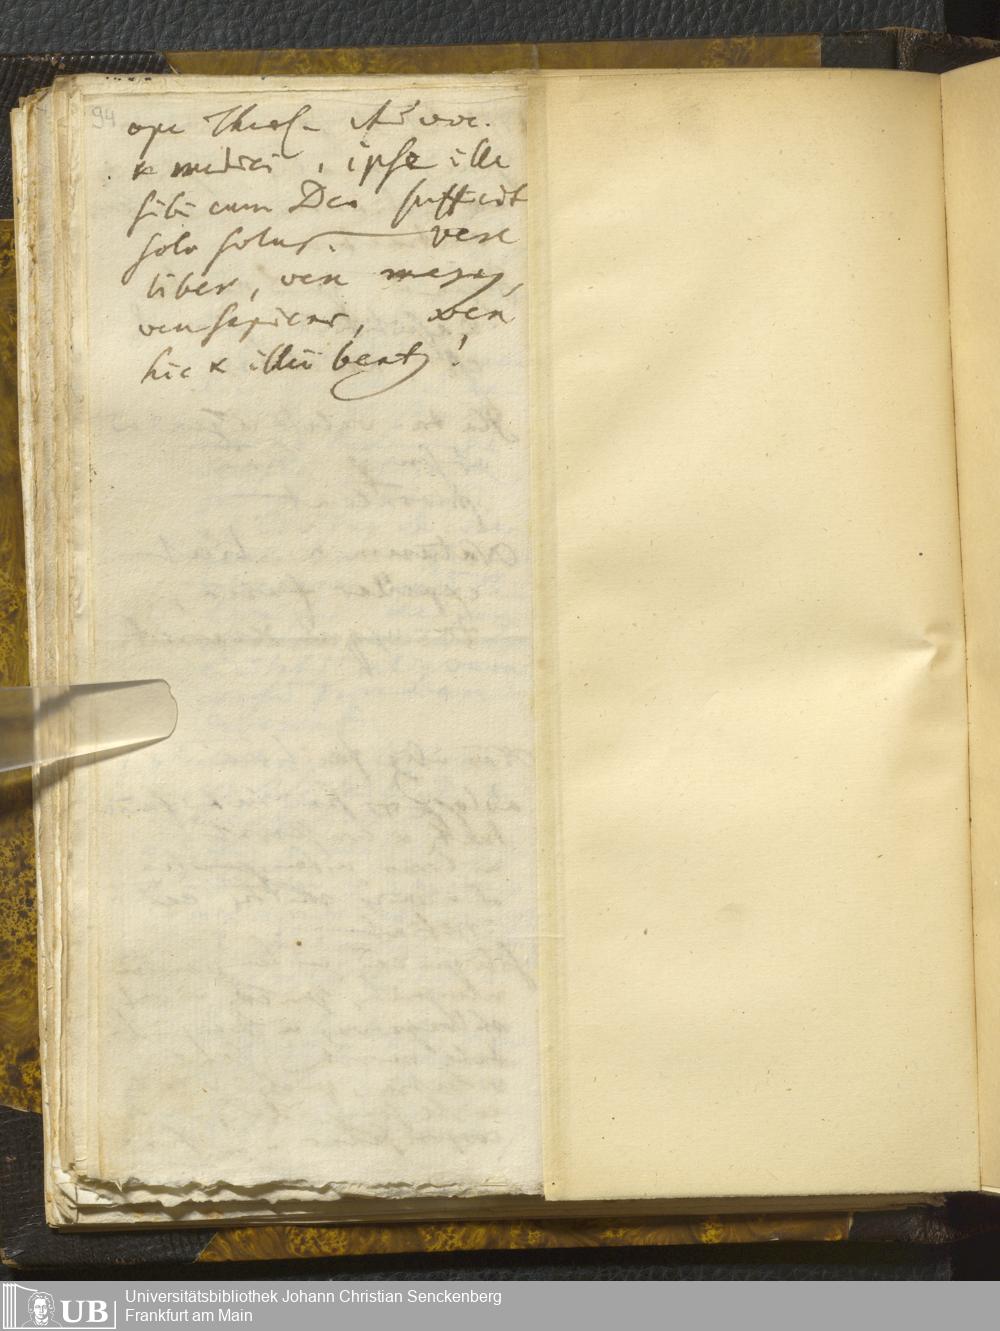 94
ope Theol. Advoc.
& medici, ipse ille
sibi cum Deo sufficit
solo solus. vere
liber, vere magnus,
vere sapiens, vere
hic & illic beatus!
UB
Universitätsbibliothek Johann Christian Senckenberg
Frankfurt am Main